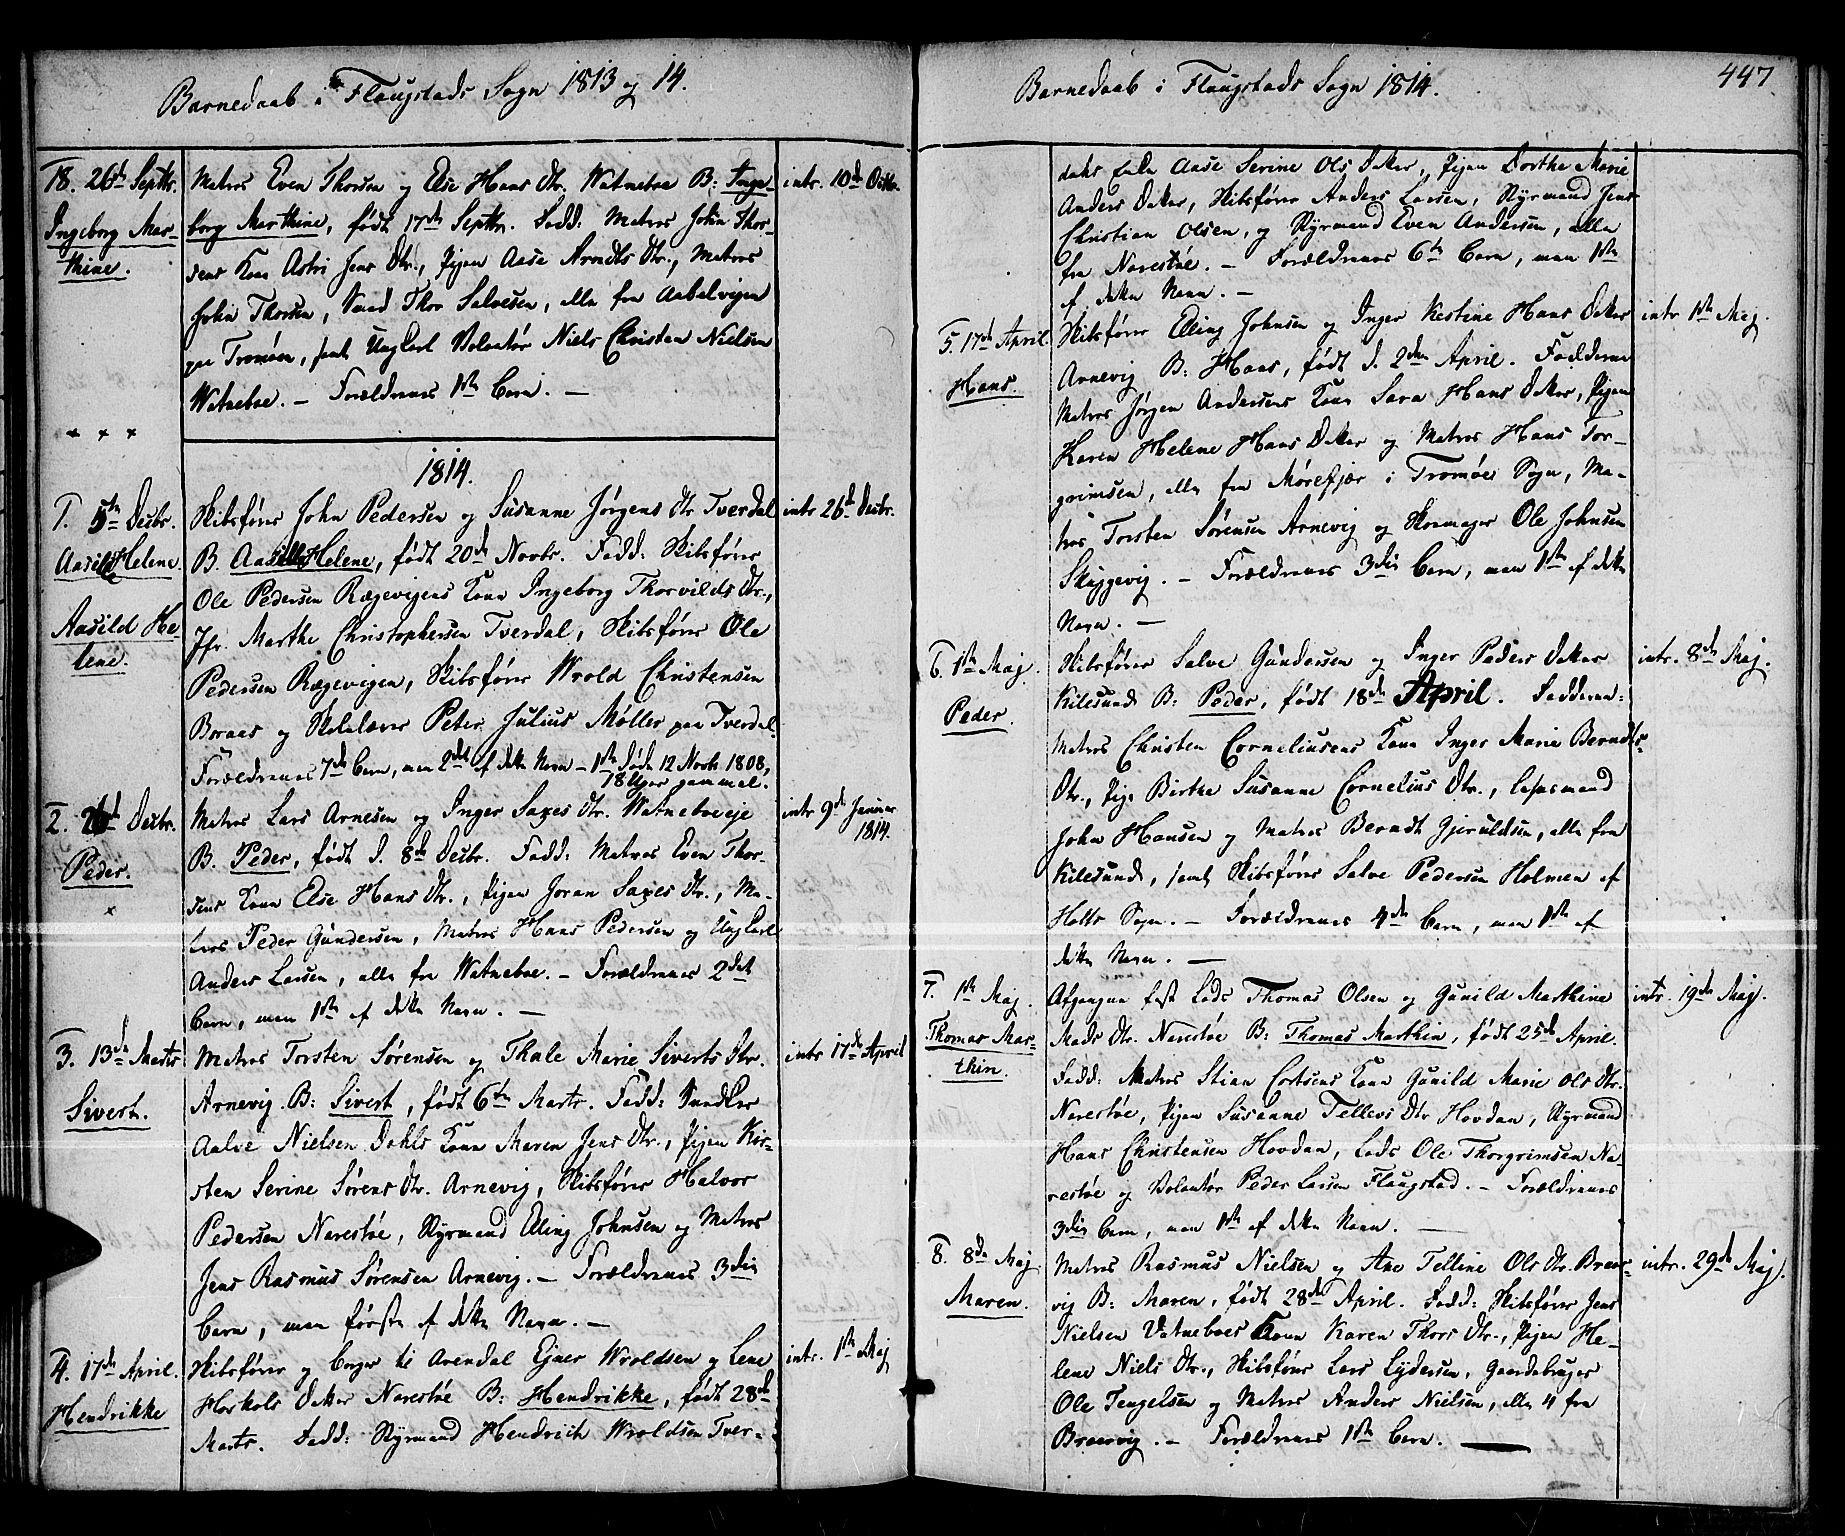 Barnedaab i Flaugstads Sogn 1813 og 14.
18. 26de Septbr.
Ingeborg Mar-
thine.
Matros Even Thorsen og Else Hans Dtr. Watneboe B: Inge-
borg Marthine, født 17de Septbr. Fadd: Matros John Thor-
sens Kone Astri Jens Dtr., Pigen Aase Arndts Dtr., Matros
John Thorsen, Smed Thor Salvesen, alle fra Aabelvigen
paa Tromøen, samt Ungkarl Volontør Niels Christen Nielsen
Watneboe. – Forældrenes 1ste Barn. –
intr. 10de
1814.
1. 5te Decbr.
Aasild Helene.
Aasild He-
lene.
Skibsfører John Pedersen og Susanne Jørgens Dtr Tverdal
B. Aasild Helene, født 20de Novbr. Fadd: Skibsfører
Ole Pedersen Rægevigens Kone Ingeborg Thorvilds Dtr.,
Jfr. Marthe Christophersen Tverdal, Skibsfører Ole
Pedersen Rægevigen, Skibsfører Wrold Christensen
Boraas og Skolelærer Peter Julius Møller paa Tverdal.
Forældrenes 7de Barn, men 2det af dette Navn – 1ste døde 12 Novb. 1808,
18 Uger gammel.
intr 26de Decbr.
2. 26de Decbr.
Peder.
Matros Lars Arnesen og Inger Saxes Dtr. Watneboeeje
B. Peder, født d. 8de Decbr. Fadd: Matros Even Thor-
sens Kone Else Hans Dtr., Pigen Joran Saxes Dtr., Ma-
tros Peder Gundersen, Matros Hans Pedersen og Ungkarl
Anders Larsen, alle fra Watneboe. – Forældrenes 2det
Barn, men 1ste af dette Navn. –
intr 9de Januar
1814.
3. 13de Marts
Sivert.
Matros Torsten Sørensen og Thale Marie Siverts Dtr.
Arnevig. B: Sivert, født 6te Marts. Fadd:
Aalve Nielsen Dahls Kone Maren Jens Dtr., Pigen Kir-
sten Serine Sørens Dtr. Arnevig, Skibsfører Halvor
Pedersen Narestøe, Styrmand Elling Johnsen og Matros
Jens Rasmus Sørensen Arnevig. – Forældrenes 3die
Barn, men første af dette Navn. –
intr 17de April
4. 17de April.
Hendrikke
Skibsfører og Borger til Arendal Ejner Wroldsen og Lene
Horkels Datter Narestøe B: Hendrikke, født 28de
Marts. Fadd: Styrmand Hendrich Wroldsen Tver-
intr. 1ste Maj
Barnedaab i Flaugstads Sogn 1814.
447.
dals Aase Serine Ols Datter, Pigen Dorthe Marie
Anders Datter, Skibsfører Anders Larsen, Styrmand Jens
Christian Olsen, og Styrmand Even Andersen, alle
fra Narestøe. – Forældrenes 6te Barn, men 1ste
af dette Navn. –
5. 17de April.
Hans.
Skibsfører Elling Johnsen og Inger Kestine Hans Datter
Arnevig B: Hans, født d. 2den April. Fadderne
Matros Jørgen Andersens Kone Sara Hans Datter, Pigen
Karen Helene Hans Datter og Matros Hans Tor-
grimsen, alle fra Mørefjær i Tromøe Sogn, Ma-
tros Torsten Sørensen Arnevig og Skomager Ole Johnsen
Skuggevig. – Forældrenes 3die Barn, men 1ste af dette
Navn. –
intr 1ste Maj.
6. 1ste Maj.
Peder.
Skibsfører Salve Gundersen og Inger Peders Datter
Kilesund B: Peder, født 18de April. Fadderne:
Matros Christen Corneliusens Kone Inger Marie Berndts
Dtr., Pige Birthe Susanne Cornelius Dtr.,
John Hansen og Matros Berndt Gjeruldsen, alle fra
Kilesund, samt Skibsfører Salve Pedersen Holmen af
Holts Sogn. – Forældrenes 4de Barn, men 1ste af
dette Navn. –
intr. 8de Maj.
7. 1ste Maj.
Thomas Mar-
thin.
Afgangne fast Lods Thomas Olsen og Gunild Marthine
Mads Dtr. Narestøe B: Thomas Marthin, født 25de April.
Fadd: Matros Stian Cortsens Kone Gunild Marie Ols Dtr.
Narestøe, Pigen Susanne Tellevs Dtr Hovdan, Styrmand
Hans Christensen Hovdan, Lods Ole Thorgrimsen Na-
restøe og Volontør Peder Larsen Flaugstad. – Forældrenes
3die Barn, men 1ste af dette Navn. –
intr. 19de Maj.
8. 8de Maj
Maren.
Matros Rasmus Nielsen og Ane Telline Ols Dtr. Braar-
vig B: Maren, født 28de April. Fadd: Skibsfører Jens
Nielsen Vatneboes Kone Karen Thors Dtr., Pigen He-
lene Niels Dtr., Skibsfører Lars Lydersen, Gaardbruger
Ole Tengelsen og Matros Anders Nielsen, alle 4 fra
Braarvig. – Forældrenes 1ste Barn. –
intr. 29de Maj.